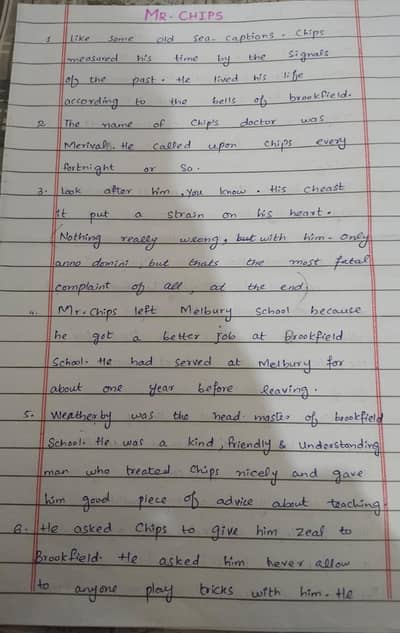 MR. CHIPS
1 Like some old sea-captions. Chips
measured his time by the signals
of the past. He lived his life
according to the bells of brookfield.
2. The name of Chip's doctor was
Merival. He called upon Chips every
fortnight or so.
3. Look after him, you know. His cheast
it put a strain on his heart.
(Nothing really wrong, but with him- only
anno domini, but thats the most fatal
complaint of all, at the end)
4. Mr. Chips left Melbury School because
he got a better job at Brookfield
School. He had served at Melbury for
about one year before leaving.
5. Weatherby was the head master of brookfield
School. He was a kind, friendly & Understanding
man who treated Chips nicely and gave
him good piece of advice about teaching.
6. He asked Chips to give him zeal to
Brookfield. He asked him never allow
to anyone play tricks with him. He